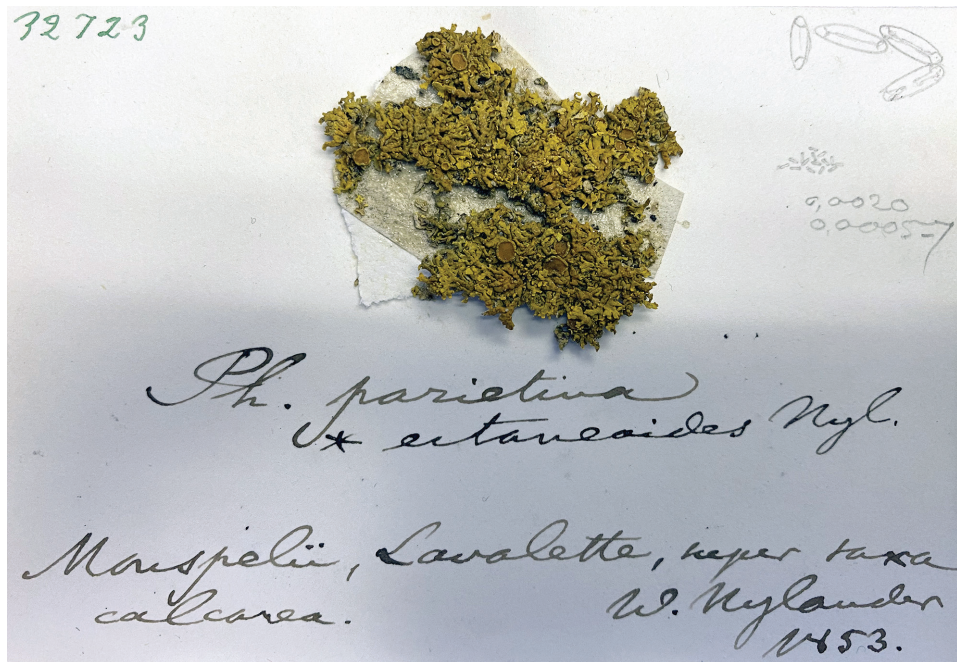 32723
0,0020
0,00057
Ph. parietina
* ectaneoides Nyl.
Monspelii, Lavalette, super saxa
calcarea.
W. Nylander
1853.